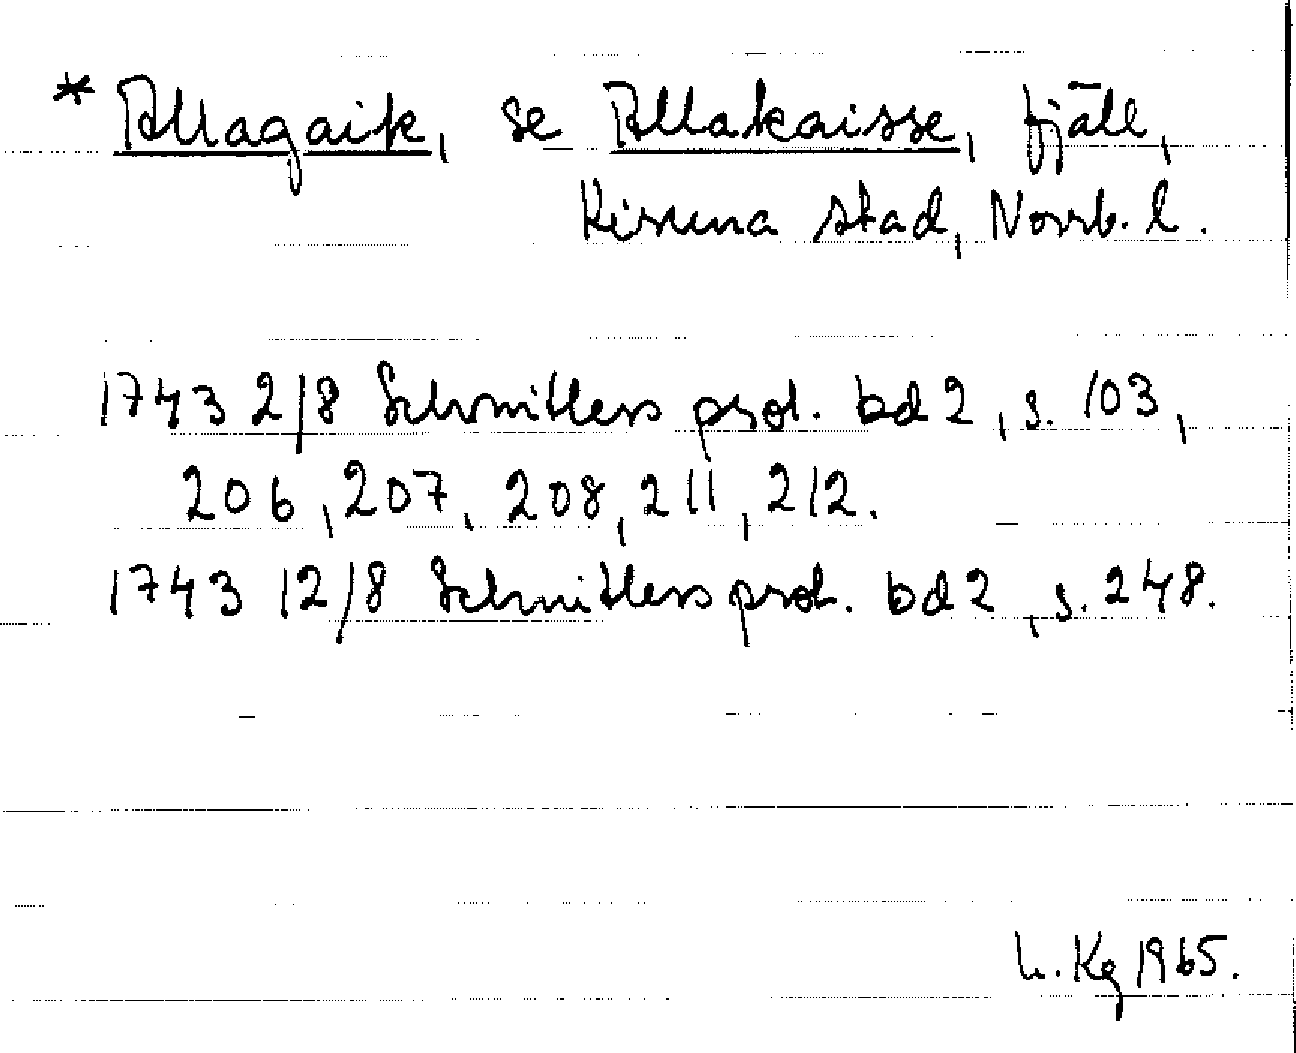 * Allagaik, se Allakaisse, fjäll,
Kiruna stad, Norrb. l.
1743 2/8 Schnitlers prot. bd 2, s. 103,
206, 207, 208, 211, 212.
1743 12/8 Schnitlers prot. bd 2, s. 248.
h. Kg 1965.